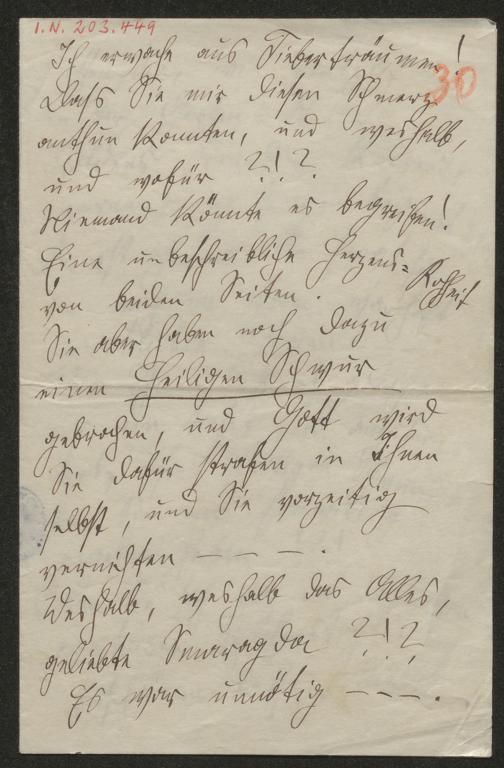 I.N. 203.449
30
Ich erwache aus Fieberträumen!
Dass Sie mir diesen Schmerz
anthun konnten, und weshalb,
und wofür ?!?
Niemand könnte es begreifen!
Eine unbeschreibliche Herzens=Roheit
von beiden Seiten.
Sie aber haben noch dazu
einen Heiligen Schwur
gebrochen, und Gott wird
Sie dafür strafen in Ihnen
selbst, und Sie vorzeitig
vernichten — — —.
Weshalb, weshalb das Alles,
geliebte Smaragda ?!?
Es war unnötig — — —.